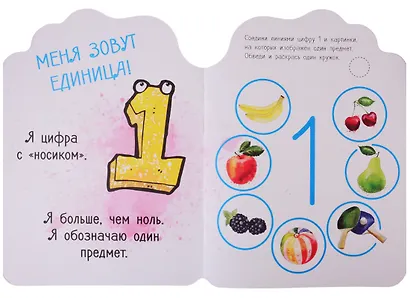 МЕНЯ ЗОВУТ
ЕДИНИЦА!
1
Я цифра
с «носиком».
Я больше, чем ноль.
Я обозначаю один
предмет.
Соедини линиями цифру 1 и картинки,
на которых изображён один предмет.
Обведи и раскрась один кружок.
1